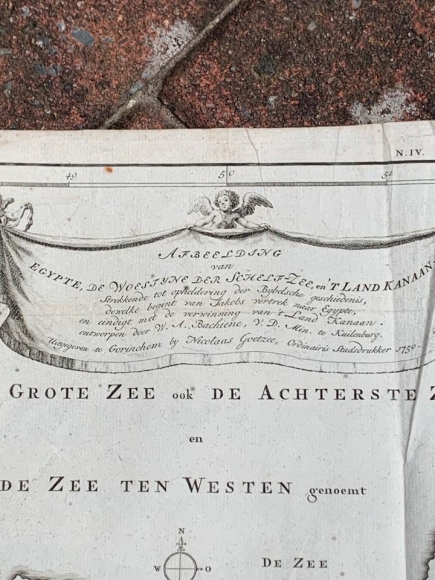 N. IV.
49 50 51
AFBEELDING
van
EGYPTE, DE WOESTYNE DER SCHELF-ZEE en 'T LAND KANAAN
Strekkende tot opheldering der Bybelsche geschiedenis,
dewelke begint van Jakobs vertrek naar Egypte,
en eindigt met de verwinning van 't Land Kanaan.
ontworpen door W. A. Bachiene, V. D. Min. te Kuilenburg.
Uitgegeven te Gorinchem by Nicolaas Goetzee, Ordinairis Stadsdrukker 1750.
GROTE ZEE ook DE ACHTERSTE Z
en
DE ZEE TEN WESTEN genoemt
N
W O
DE ZEE